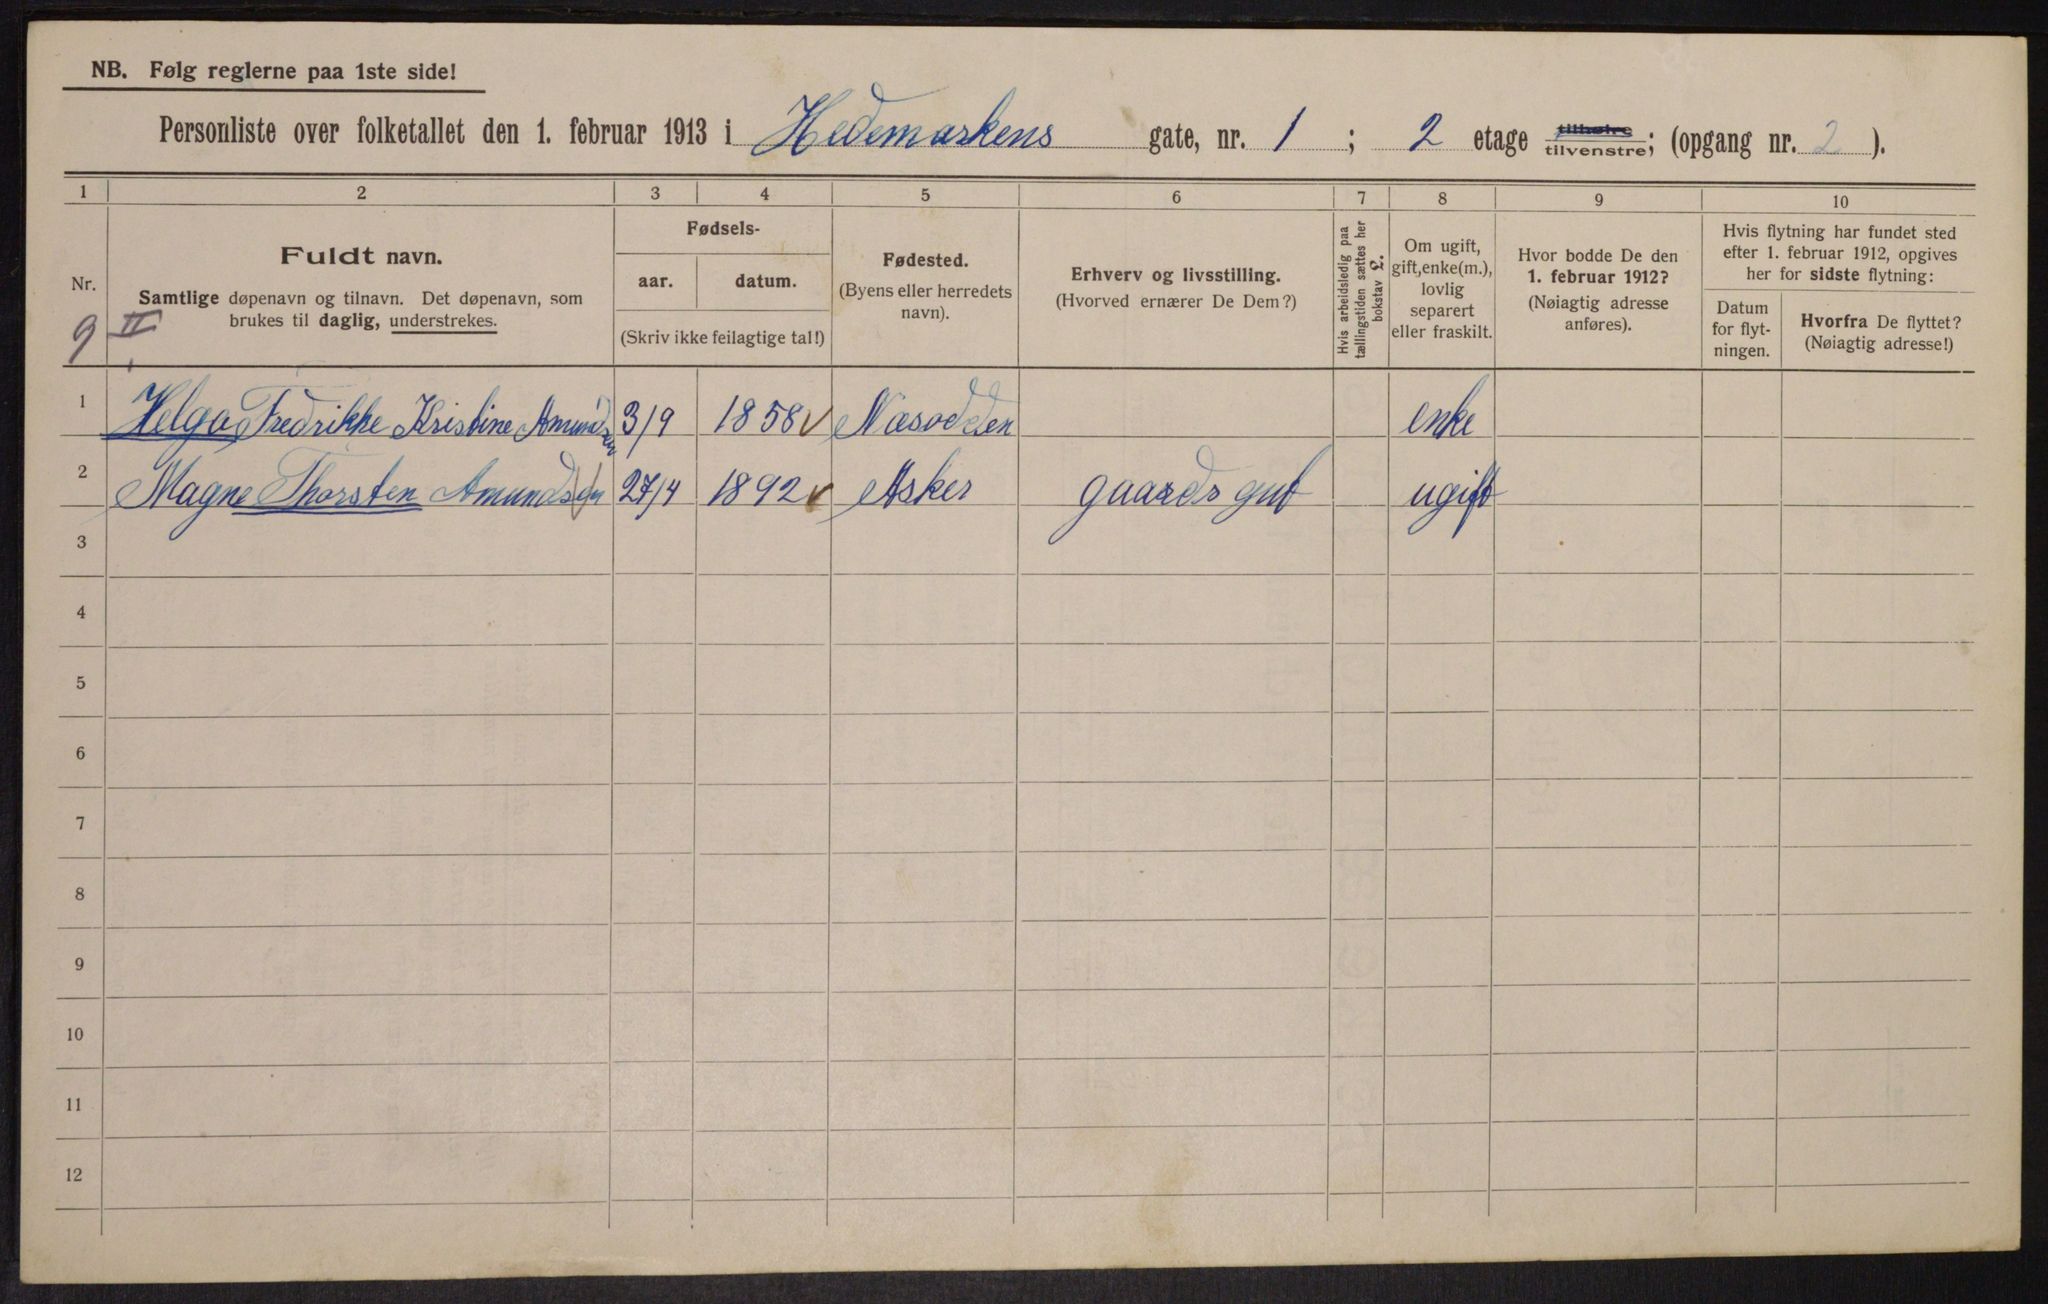 NB. Følg reglerne paa 1ste side!
Personliste over folketallet den 1. februar 1913 i Hedemarkens gate, nr. 1 ; 2 etage tilhøire tilvenstre; (opgang nr. 2 ).
1 2 3 4 5 6 7 8 9 10
Nr.
Fuldt navn.
Samtlige døpenavn og tilnavn. Det døpenavn, som
brukes til daglig, understrekes.
9 II
Fødsels-
aar. datum.
(Skriv ikke feilagtige tal!)
Fødested.
(Byens eller herredets
navn).
Erhverv og livsstilling.
(Hvorved ernærer De Dem?)
Hvis arbeidsledig paa
tællingstiden sættes her
bokstav L.
Om ugift,
gift, enke(m.),
lovlig
separert
eller fraskilt.
Hvor bodde De den
1. februar 1912?
(Nøiagtig adresse
anføres).
Hvis flytning har fundet sted
efter 1. februar 1912, opgives
her for sidste flytning:
Datum
for flyt-
ningen.
Hvorfra De flyttet?
(Nøiagtig adresse!)
1 Helga Fredrikke Kristine Amundsen 3/9 1858 Næsodden enke
2 Magne Thorsten Amundsen 27/4 1892 Asker gaardsgut ugift
3
4
5
6
7
8
9
10
11
12